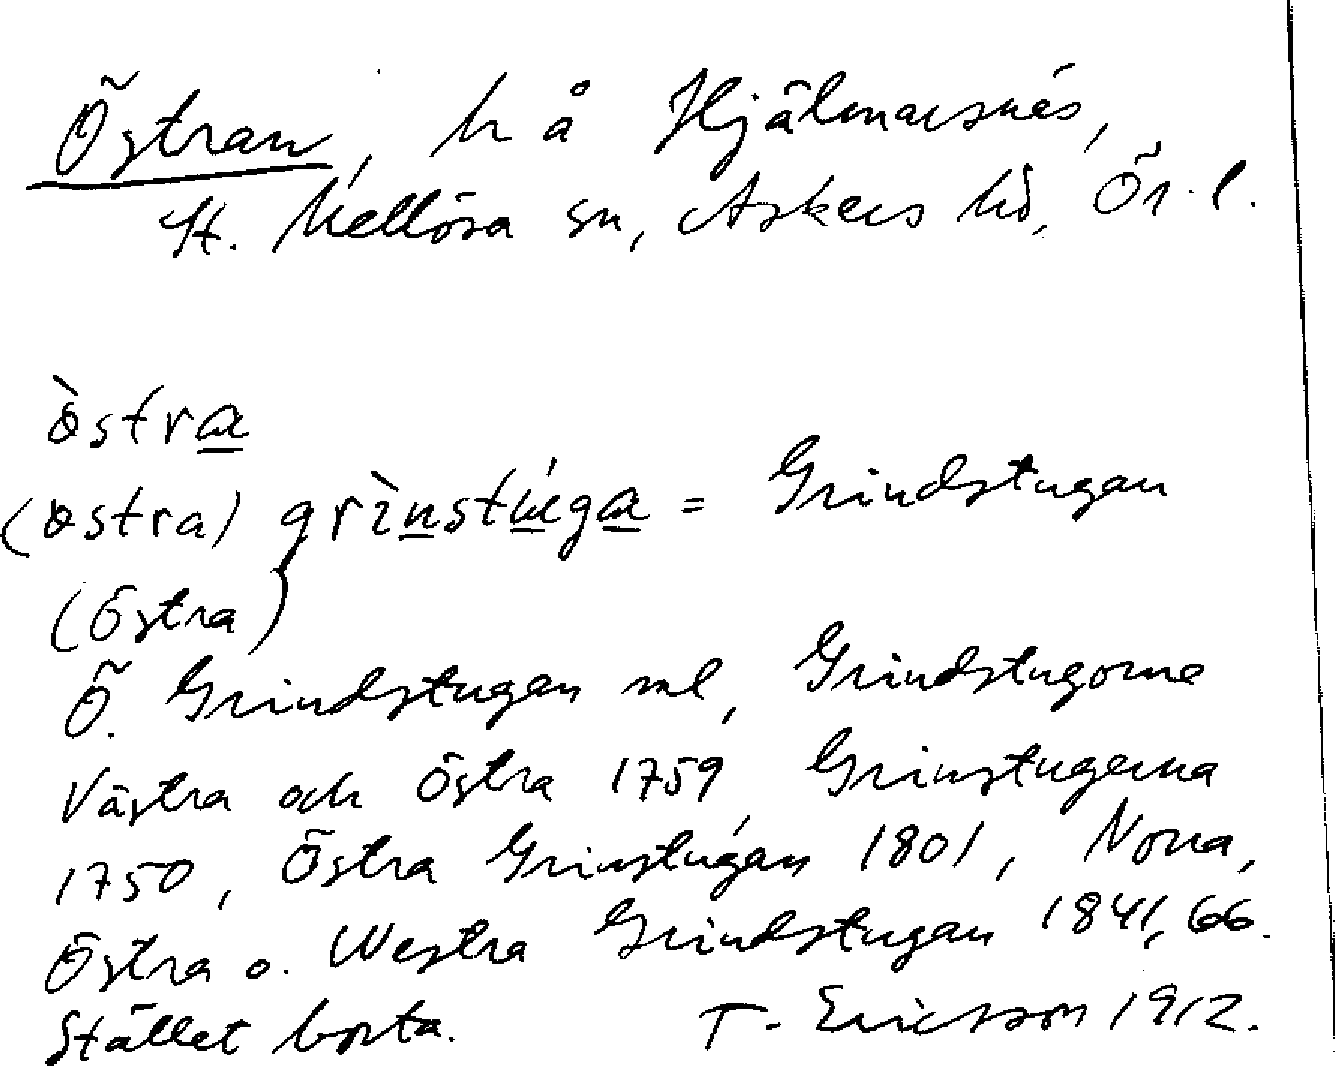 Östran, h å Hjälmarsnäs,
St. Mellösa sn, Askers hd, Ör. l.
östra
(östra) grinstuga = Grindstugan
(Östra)
Ö. Grindstugan ml, Grindstugorna
Västra och Östra 1759, Grinstugerna
1750, Östra Grinstugan 1801, Norra,
Östra o. Westra Grindstugan 1841, 66.
Stället borta. T. Ericsson 1912.